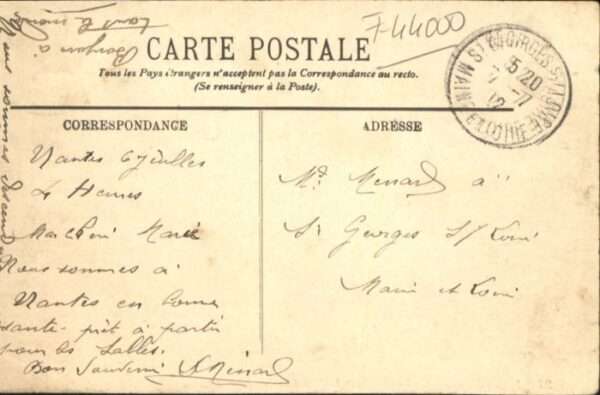 CARTE POSTALE
Tous les Pays étrangers n'acceptent pas la Correspondance au recto.
(Se renseigner à la Poste).
7-44000
CORRESPONDANCE
ADRESSE
Nantes 6 Juillet
4 Heures
Ma Chère Marie
Nous sommes à
Nantes en bonne
santé prêt à partir
pour les Salles.
Bon Souvenir A Ménard
Md. Menard à
St Georges S/ Loire
Maine et Loire
Nous sommes
tout le monde
Bonjour à
ST GEORGES S. LOIRE
MAINE ET LOIRE